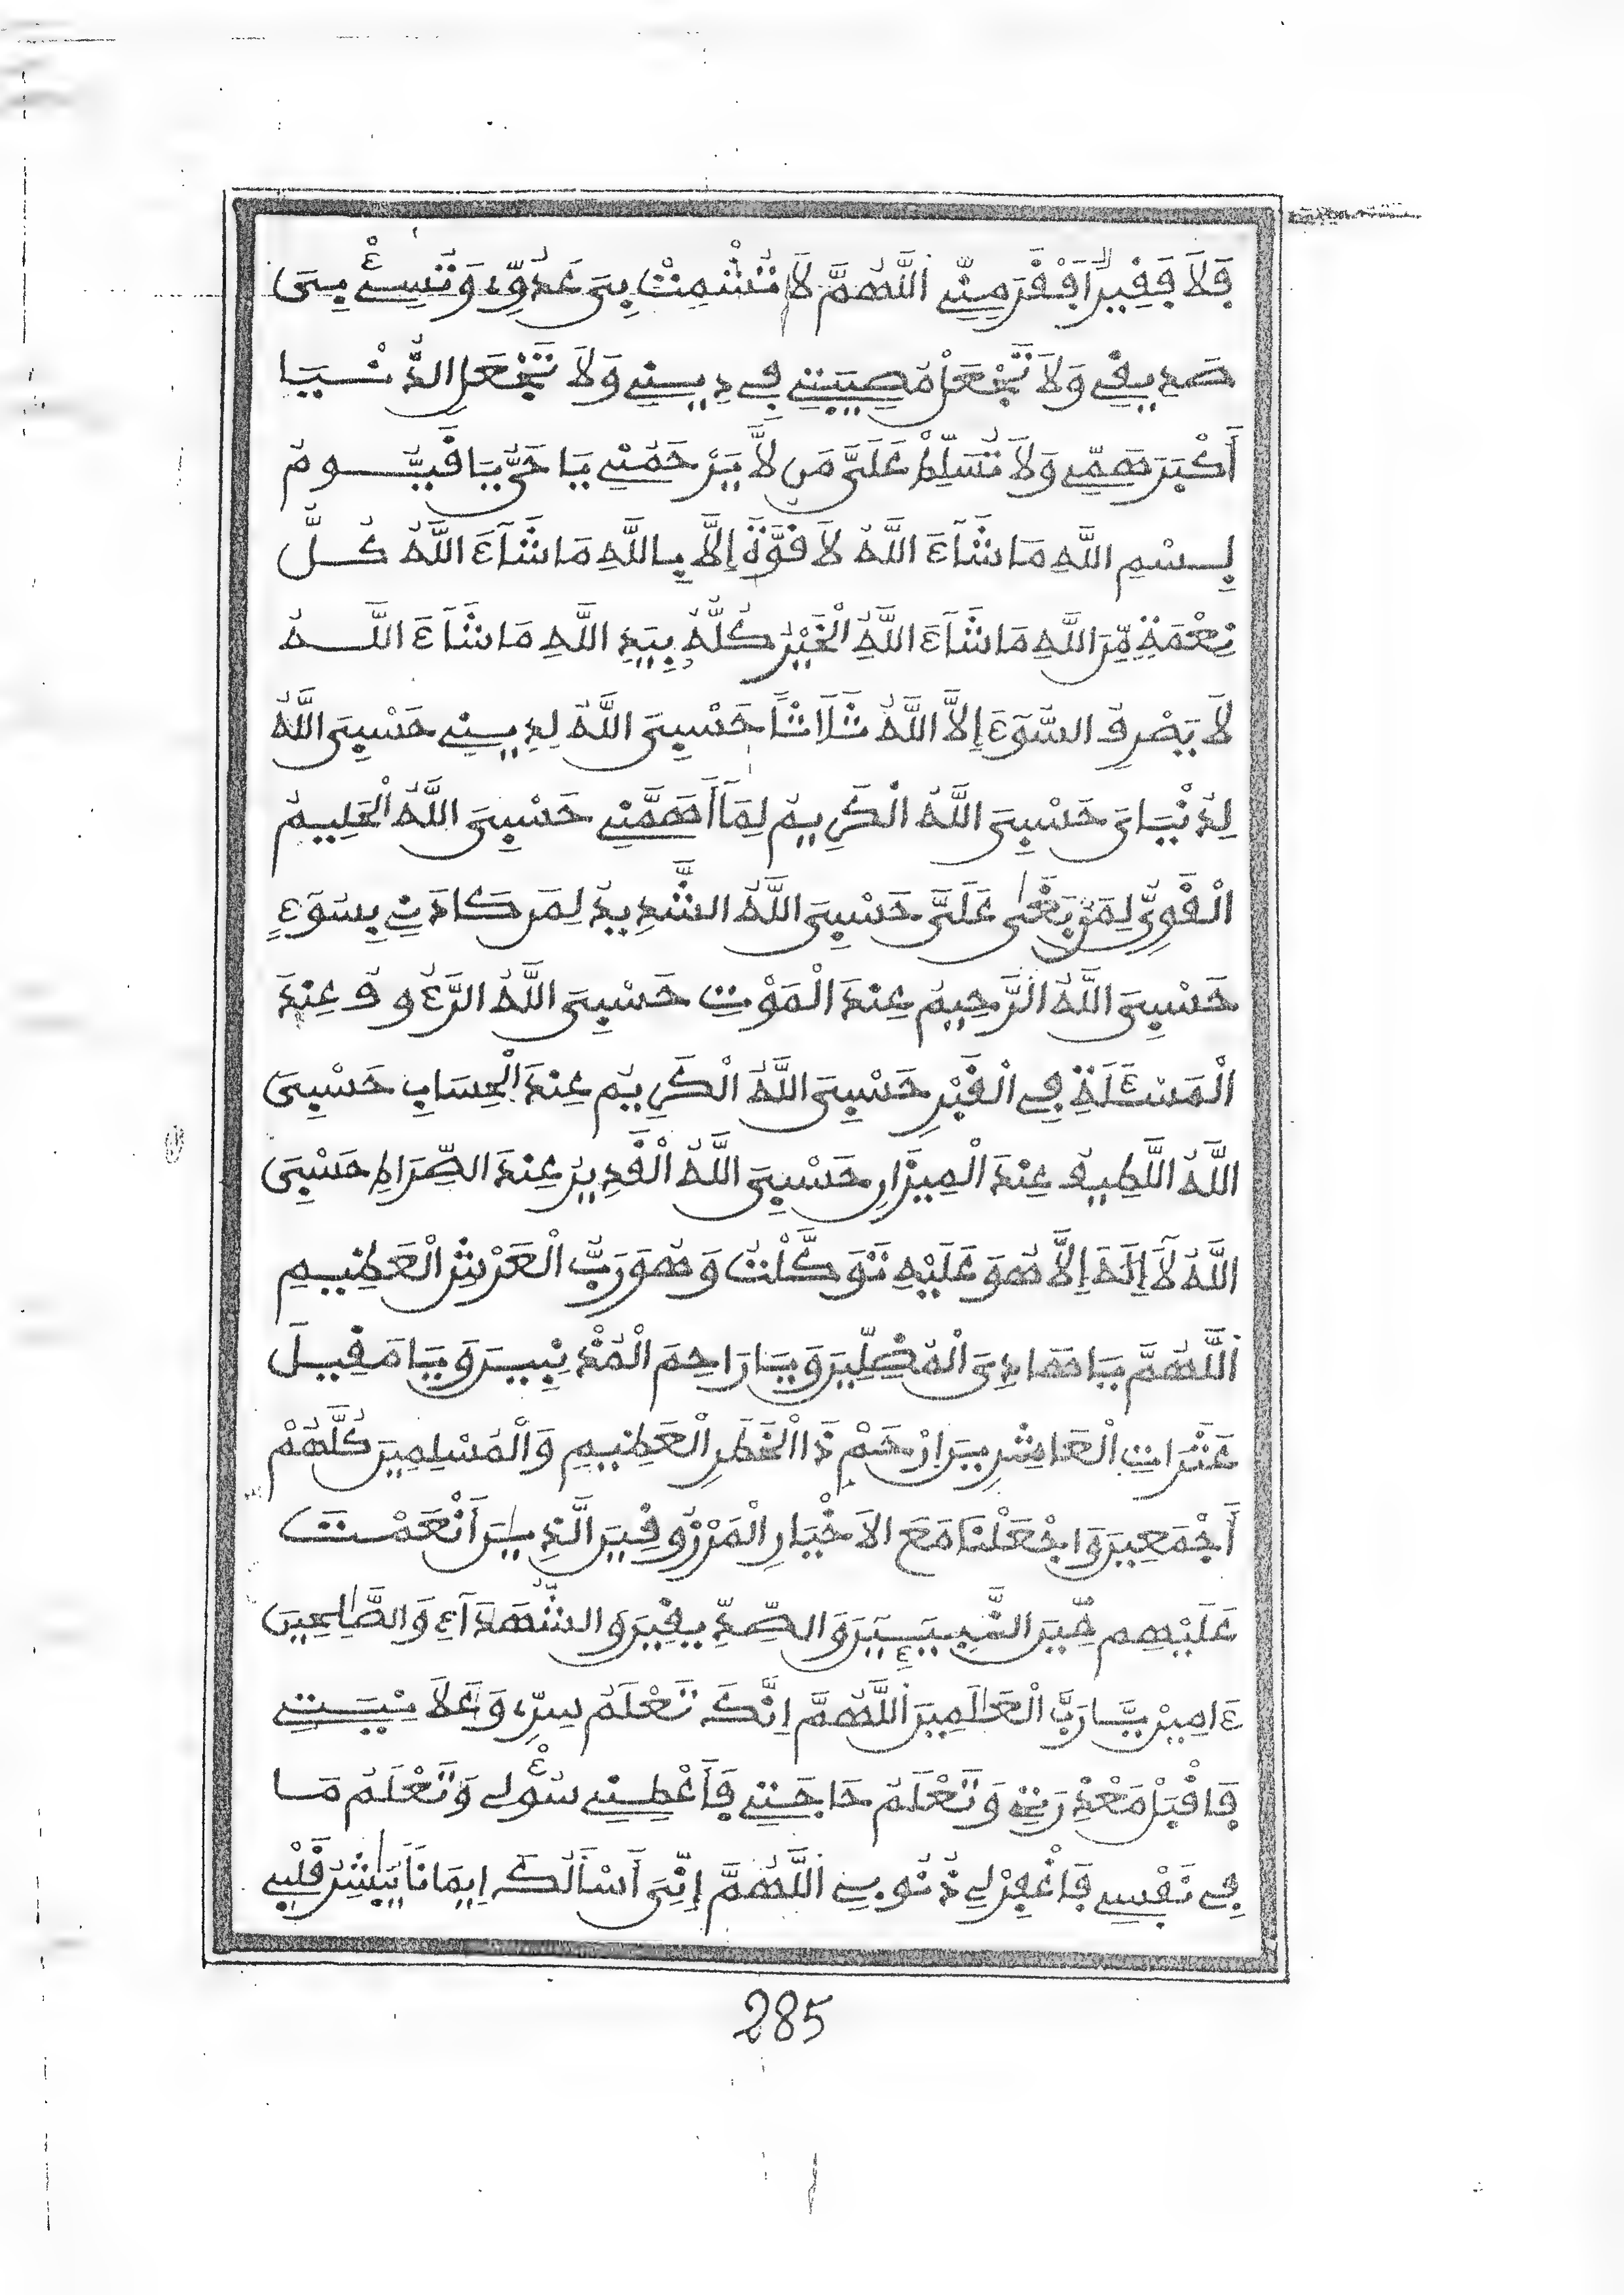 فَلَا فَقِيرًا اَفْقَرَ مِنِّي اَللَّهُمَّ لَا تُشْمِتْ بِيَ عَدُوِّي وَتَسِئْ بِيَ
صَدِيقِي وَلَا تَجْعَلْ مُصِيبَتِي فِي دِينِي وَلَا تَجْعَلِ الدُّنْيَا
أَكْبَرَ هَمِّي وَلَا تُسَلِّطْ عَلَيَّ مَن لَّا يَرْحَمُنِي يَا حَيُّ يَا قَيُّومُ
بِسْمِ اللَّهِ مَا شَآءَ اللَّهُ لَا قُوَّةَ إِلَّا بِاللَّهِ مَا شَآءَ اللَّهُ كُلُّ
نِعْمَةٍ مِّنَ اللَّهِ مَا شَآءَ اللَّهُ الْخَيْرُ كُلُّهُ بِيَدِ اللَّهِ مَا شَآءَ اللَّهُ
لَا يَصْرِفُ السُّوٓءَ إِلَّا اللَّهُ ثَلَاثًا حَسْبِيَ اللَّهُ لِدِينِي حَسْبِيَ اللَّهُ
لِدُنْيَايَ حَسْبِيَ اللَّهُ الْكَرِيمُ لِمَآ أَهَمَّنِي حَسْبِيَ اللَّهُ الْحَلِيمُ
الْقَوِيُّ لِمَنْ بَغَىٰ عَلَيَّ حَسْبِيَ اللَّهُ الشَّدِيدُ لِمَن كَادَنِي بِسُوٓءٍ
حَسْبِيَ اللَّهُ الرَّحِيمُ عِنْدَ الْمَوْتِ حَسْبِيَ اللَّهُ الرَّءُوفُ عِنْدَ
الْمَسْـَٔلَةِ فِي الْقَبْرِ حَسْبِيَ اللَّهُ الْكَرِيمُ عِنْدَ الْحِسَابِ حَسْبِيَ
اللَّهُ اللَّطِيفُ عِنْدَ الْمِيزَانِ حَسْبِيَ اللَّهُ الْقَدِيرُ عِنْدَ الصِّرَاطِ حَسْبِيَ
اللَّهُ لَآ إِلَهَ إِلَّا هُوَ عَلَيْهِ تَوَكَّلْتُ وَهُوَ رَبُّ الْعَرْشِ الْعَظِيمِ
اَللَّهُمَّ يَا هَادِيَ الْمُضِلِّينَ وَيَا رَاحِمَ الْمُذْنِبِينَ وَيَا مَقِيلَ
عَثَرَاتِ الْعَاثِرِينَ ارْحَمْ ذَا الْخَطَرِ الْعَظِيمِ وَالْمُسْلِمِينَ كُلَّهُمْ
أَجْمَعِينَ وَاجْعَلْنَا مَعَ الَاخْيَارِ الْمَرْزُوقِينَ الَّذِينَ أَنْعَمْتَ
عَلَيْهِم مِّنَ النَّبِيـِٕينَ وَالصِّدِّيقِينَ وَالشُّهَدَآءِ وَالصَّٰلِحِينَ
ءَامِينْ يَّا رَبَّ الْعَٰلَمِينَ اَللَّهُمَّ إِنَّكَ تَعْلَمُ سِرِّي وَعَلَانِيَتِي
فَاقْبَلْ مَعْذِرَتِي وَتَعْلَمُ حَاجَتِي فَأَعْطِنِي سُؤْلِي وَتَعْلَمُ مَا
فِي نَفْسِي فَاغْفِرْ لِي ذُنُوبِي اَللَّهُمَّ إِنِّيَ أَسْأَلُكَ إِيمَانًا يُبَاشِرُ قَلْبِي
285